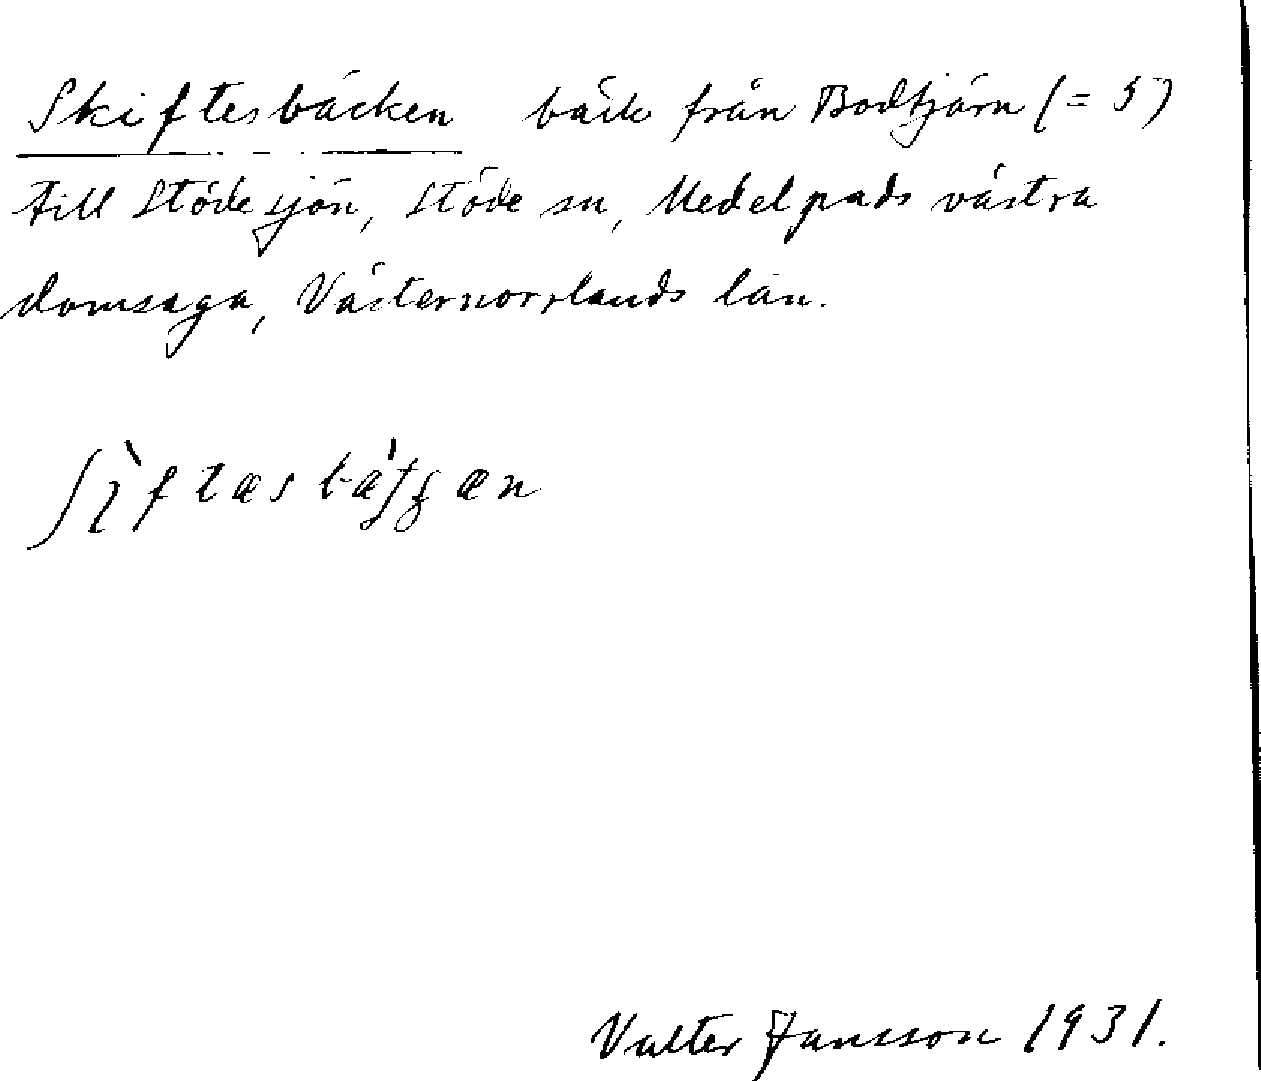 Skiftesbäcken bäck från Bodtjärn (= 5)
till Stödesjön, Stöde sn, Medelpads västra
domsaga, Västernorrlands län.
Valter Jansson 1931.